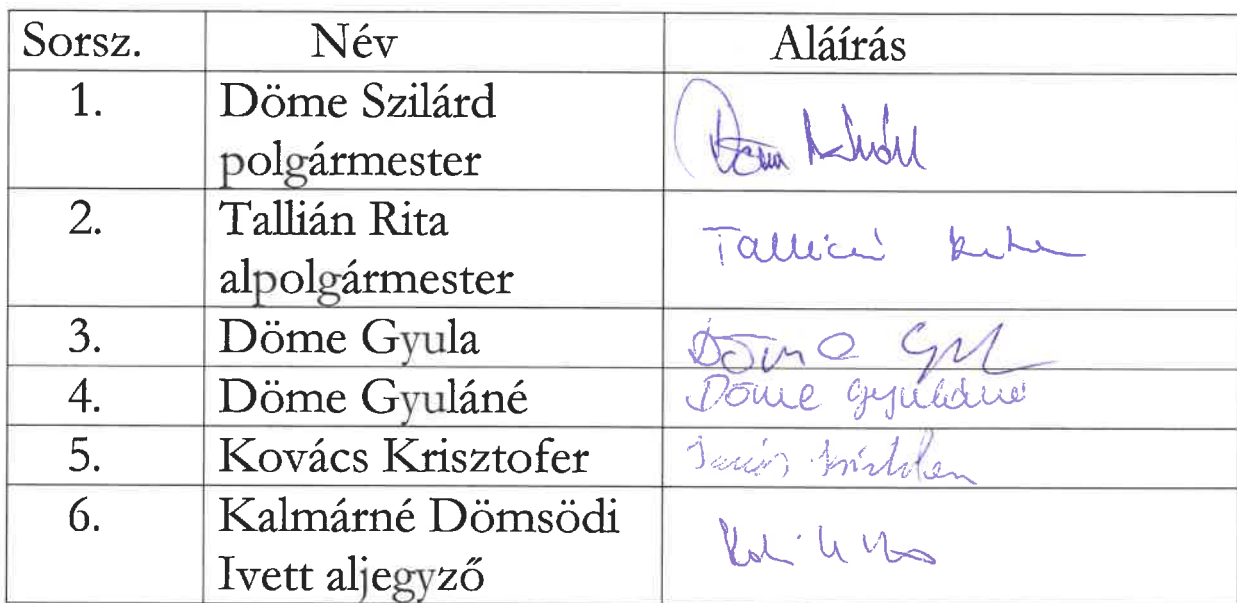 Sorsz. Név Aláírás
1. Döme Szilárd
polgármester
2. Tallián Rita
alpolgármester
Tallián Rita
3. Döme Gyula Döme
4. Döme Gyuláné Döme Gyuláné
5. Kovács Krisztofer
6. Kalmárné Dömsödi
Ivett aljegyző